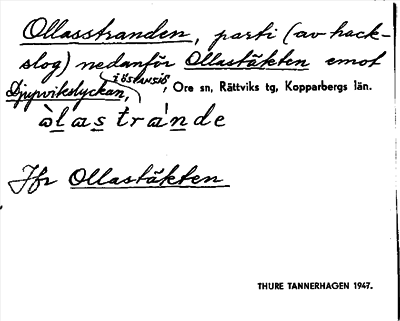 Ollasstranden, parti (av hack-
slog) nedanför Ollastäkten emot
Djupvikslyckan, i ÖSTANSJÖ, Ore sn, Rättviks tg, Kopparbergs län.
àlas tra'nde
Jfr Ollastäkten
THURE TANNERHAGEN 1947.